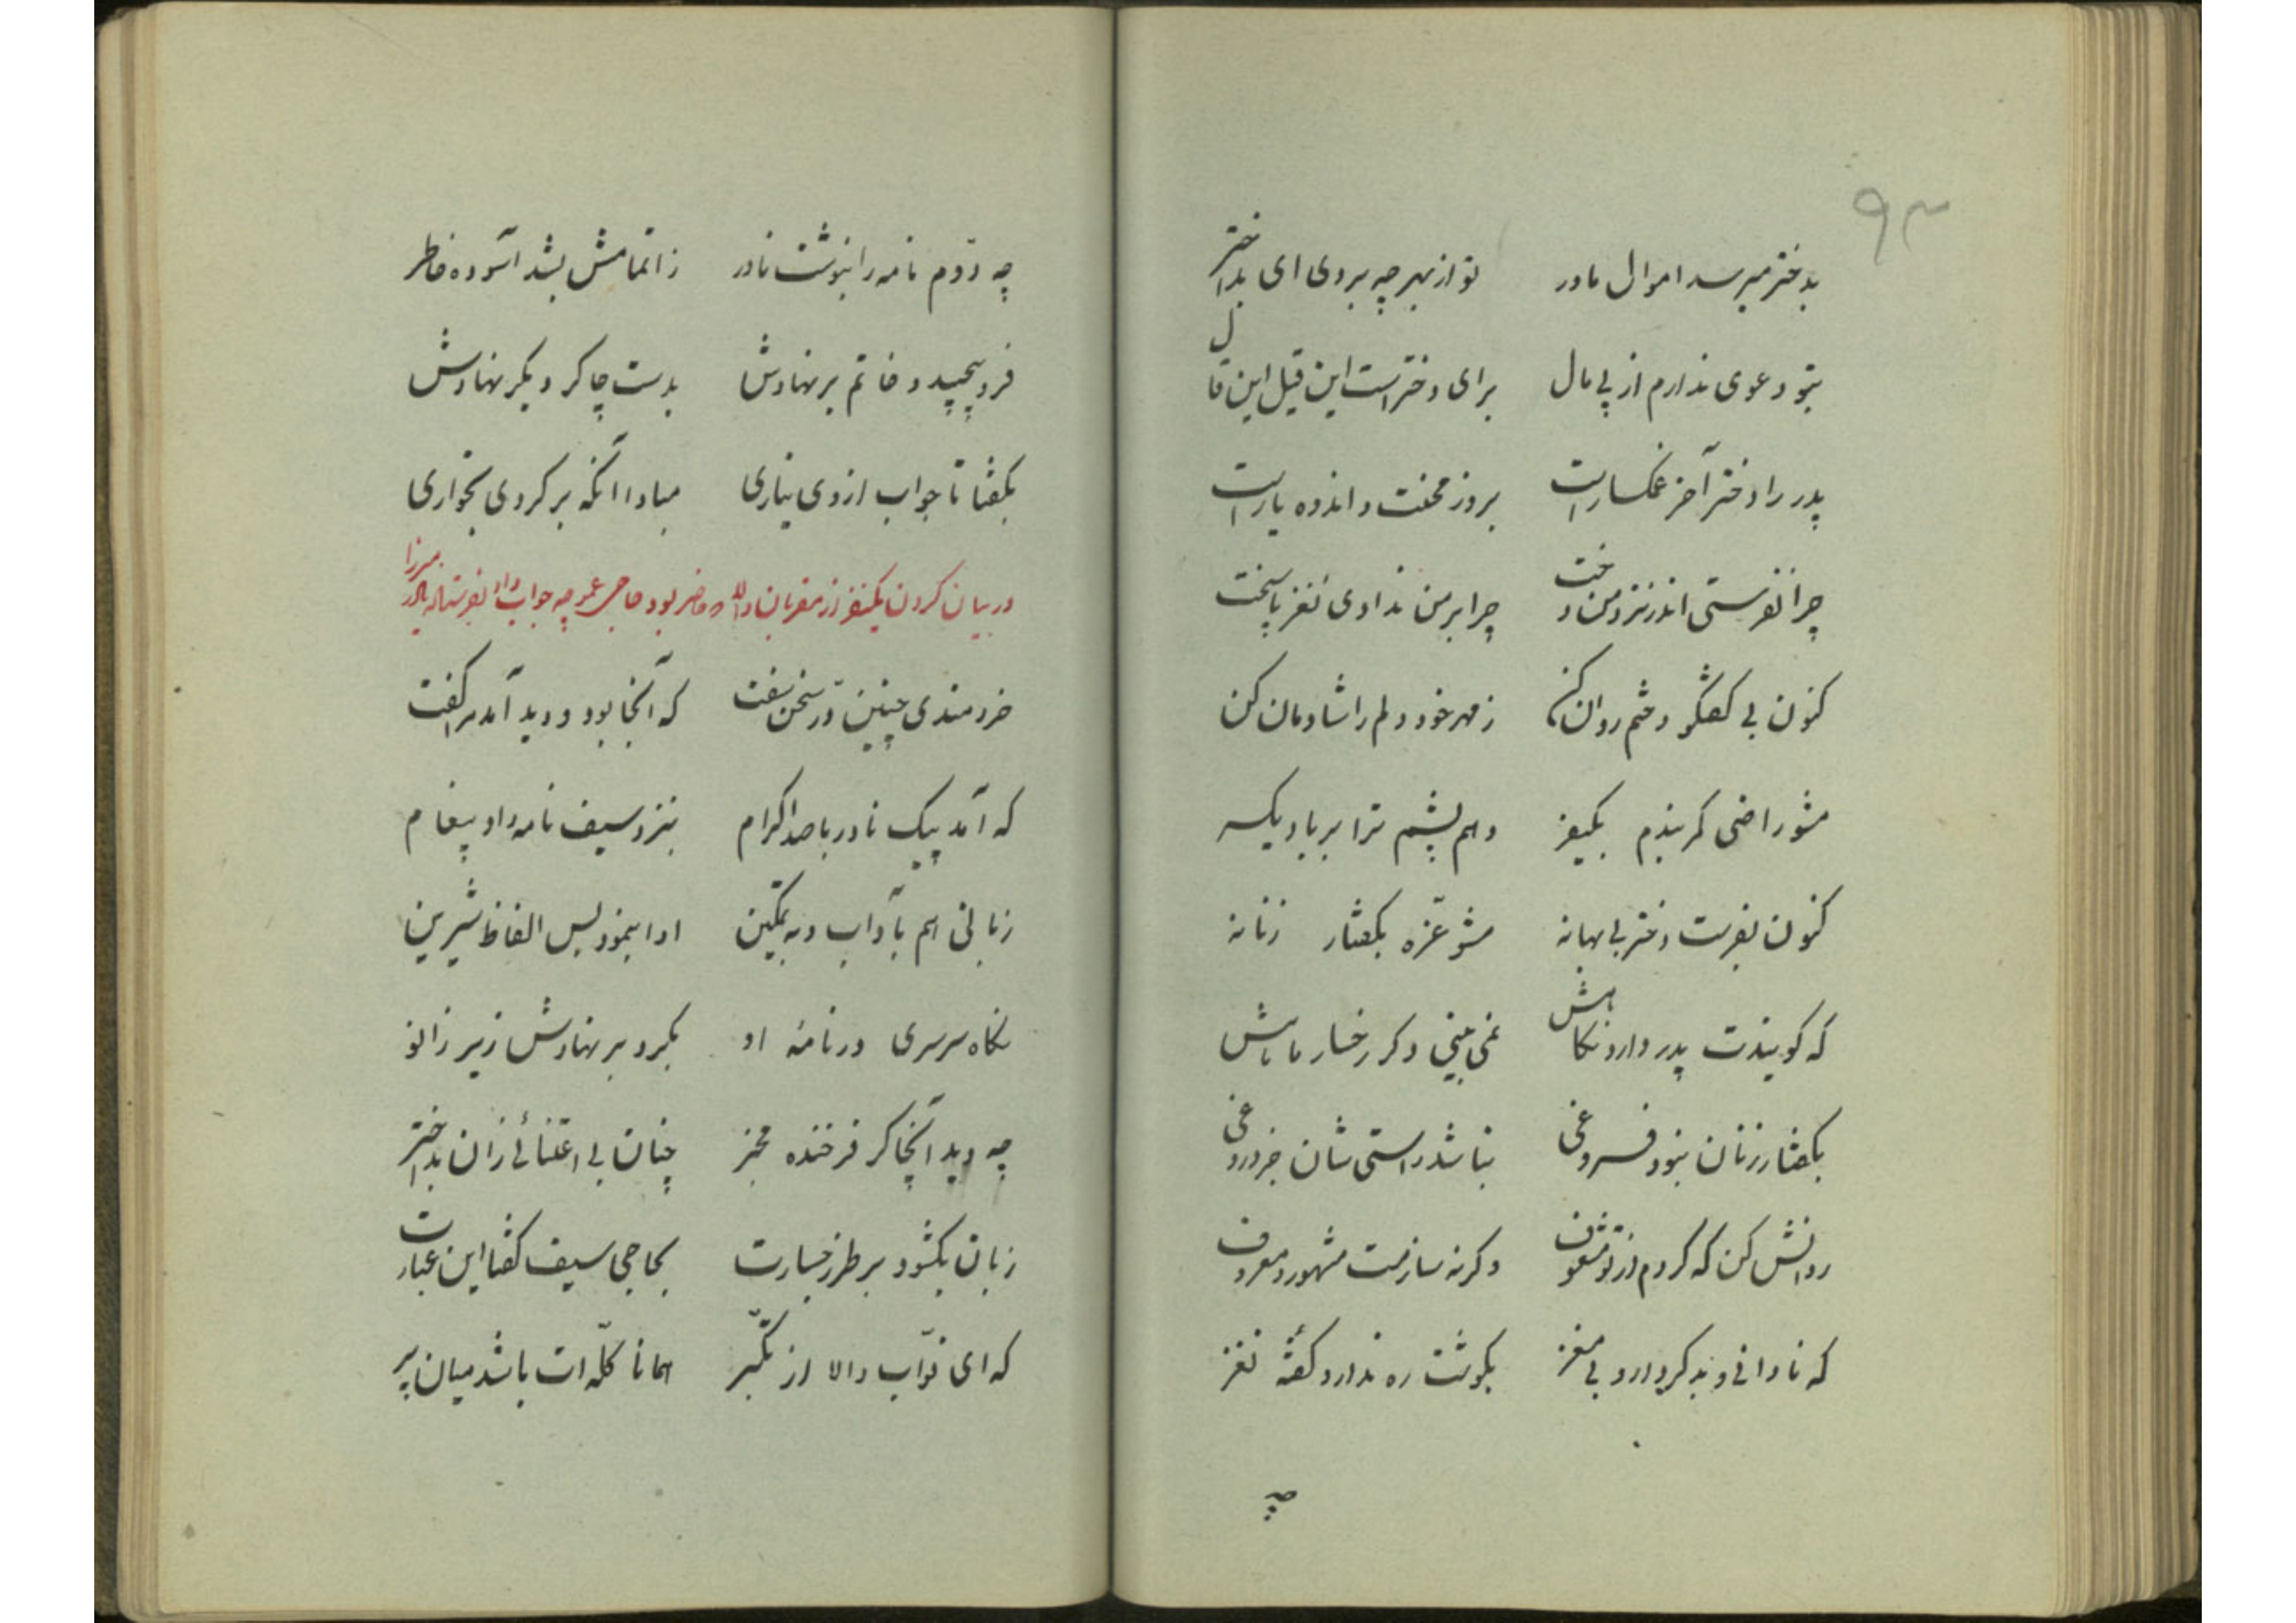 ۹۳
بدختر میرسد اموال مادر تو از بهر چه بردی ای بداختر
بتو دعوی ندارم از پی مال برای دختر است این قیل این قال
پدر را دختر آخر غمگسار است بروز محنت و اندوه یار است
چرا نفرستی اندر نزد من دخت چرا بر من ندادی نغز پاسخت
کنون بی گفتگو دختم روان کن ز مهر خود دلم را شادمان کن
مشو راضی که بندم یکسر دهم پشم ترا بر باد یکسر
کنون بفرست دختر بی بهانه مشو غره بگفتار زنانه
که گویندت پدر دارد نکاهش نمی بینی دگر رخسار ماهش
بگفتار زنان نبود فروغی نباشد راستی شان جز دروغی
روانش کن که گردم از تو مشعوف وگرنه سازمت مشهور و معروف
که نادانی و بد کردار و بی مغز بگوشت ره ندارد گفتهٔ نغز
چه
چه دوّم نامه را بنوشت نادر ز اتمامش بشد آسوده خاطر
فرو پیچید و خاتم بر نهادش بدست چاکر دیگر نهادش
بگفتا تا جواب از وی نیاری مبادا آنکه برگردی بخواری
در بیان کردن یکنفر از مقربان که حاضر بود حاجی عمو چه جواب داد بفرستاده نادر میرزا
خردمندی چنین درّ سخن سفت که آنجا بود و دید آمد مرا گفت
که آمد پیک نادر با صد اکرام بنزد سیف نامه داد پیغام
زبانی هم بآداب و به تمکین ادا بنمود بس الفاظ شیرین
نگاه سرسری در نامهٔ او بکرد و بر نهادش زیر زانو
چه دید آن چاکر فرخنده مخبر چنان بی اعتنائی زان بداختر
زبان بگشود بر طرز جسارت بحاجی سیف گفتا این عبارت
که ای نوّاب والا از تکبّر همانا کلّه ات باشد میان پر